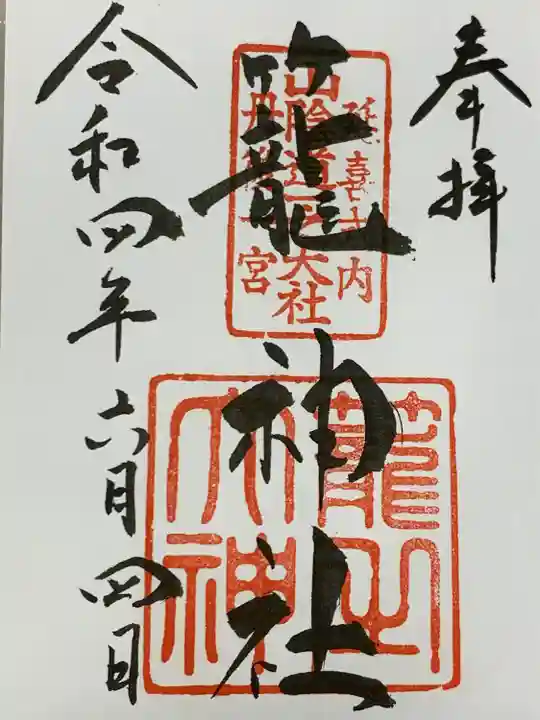 奉拝
延喜式内
山陰道一大社
丹後一宮
籠神社
籠之大神
令和四年六月四日